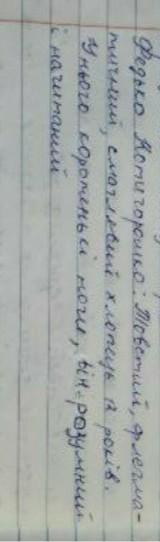 Федько Котигорошко: Товстий, флегма-
тичний, смаглявий хлопець 12 років.
У нього коротенькі ноги, він - розумний
і начитаний